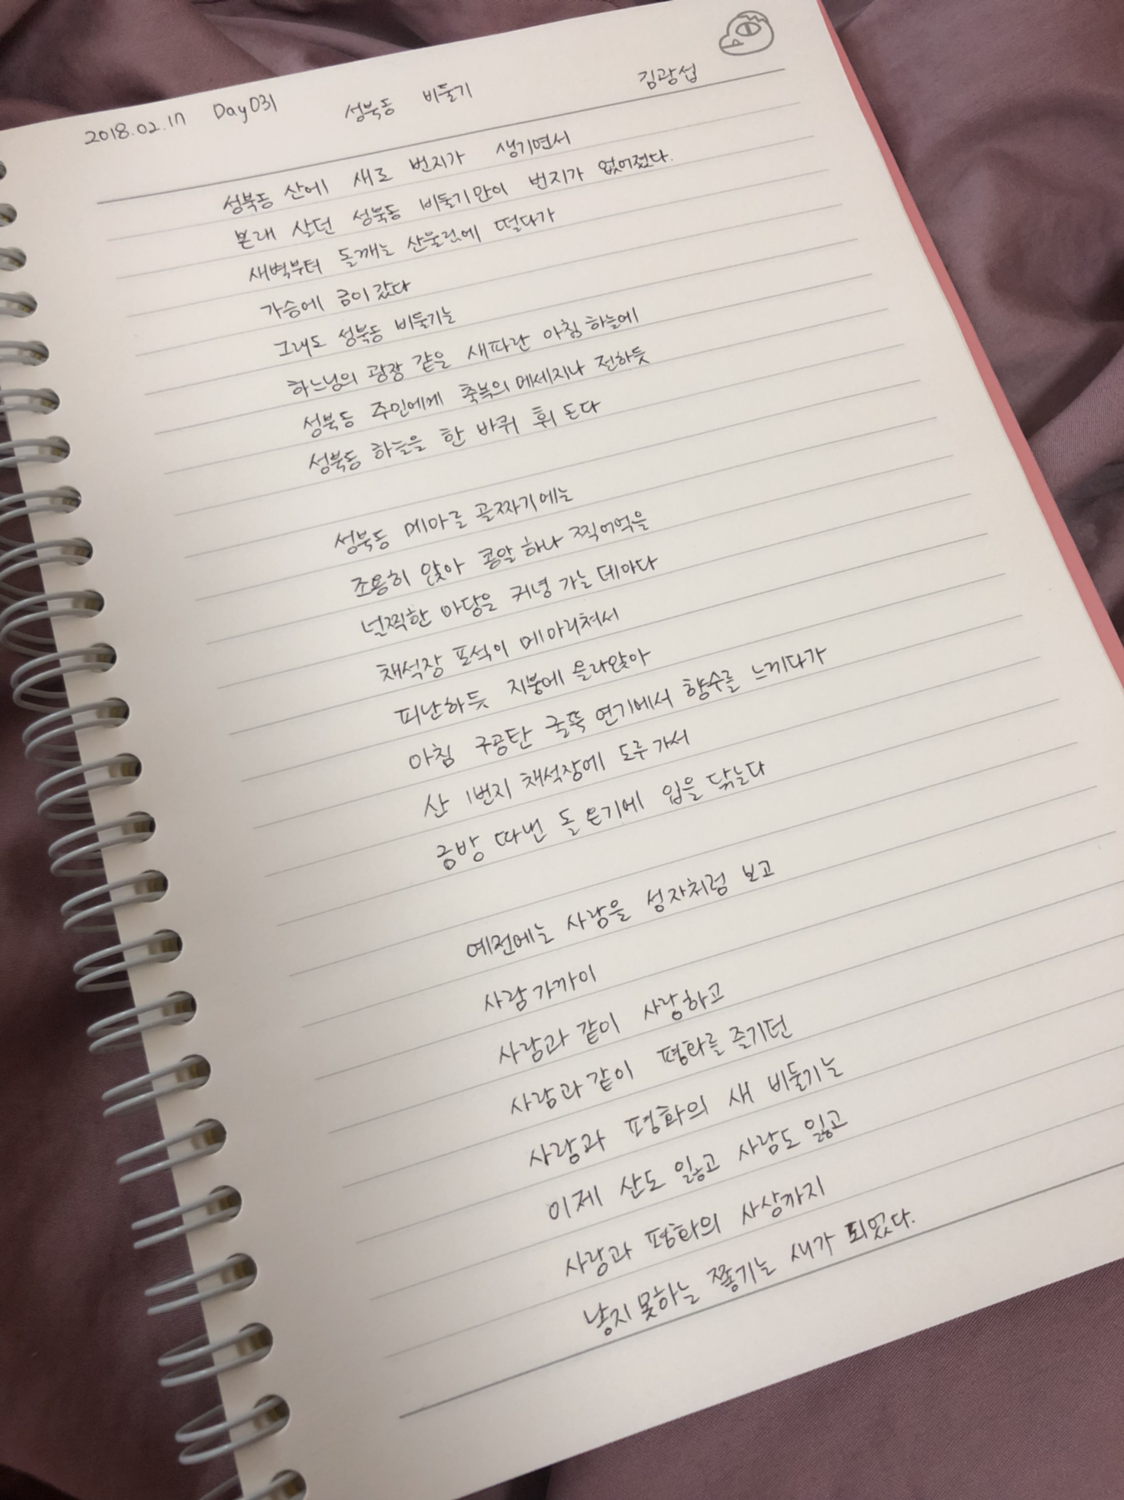 2018.02.17 Day031 성북동 비둘기 김광섭
성북동 산에 새로 번지가 생기면서
본래 살던 성북동 비둘기만이 번지가 없어졌다.
새벽부터 돌깨는 산울림에 떨다가
가슴에 금이 갔다
그래도 성북동 비둘기는
하느님의 광장 같은 새파란 아침 하늘에
성북동 주민에게 축복의 메세지나 전하듯
성북동 하늘을 한 바퀴 휘 돈다
성북동 메마른 골짜기에는
조용히 앉아 콩알 하나 찍어먹을
널찍한 마당은 커녕 가는 데마다
채석장 포성이 메아리쳐서
피난하듯 지붕에 올라앉아
아침 구공탄 굴뚝 연기에서 향수를 느끼다가
산 1번지 채석장에 도루 가서
금방 따낸 돌 온기에 입을 닦는다
예전에는 사람을 성자처럼 보고
사람 가까이
사람과 같이 사랑하고
사람과 같이 평화를 즐기던
사랑과 평화의 새 비둘기는
이제 산도 잃고 사람도 잃고
사랑과 평화의 사상까지
낳지 못하는 쫓기는 새가 되었다.